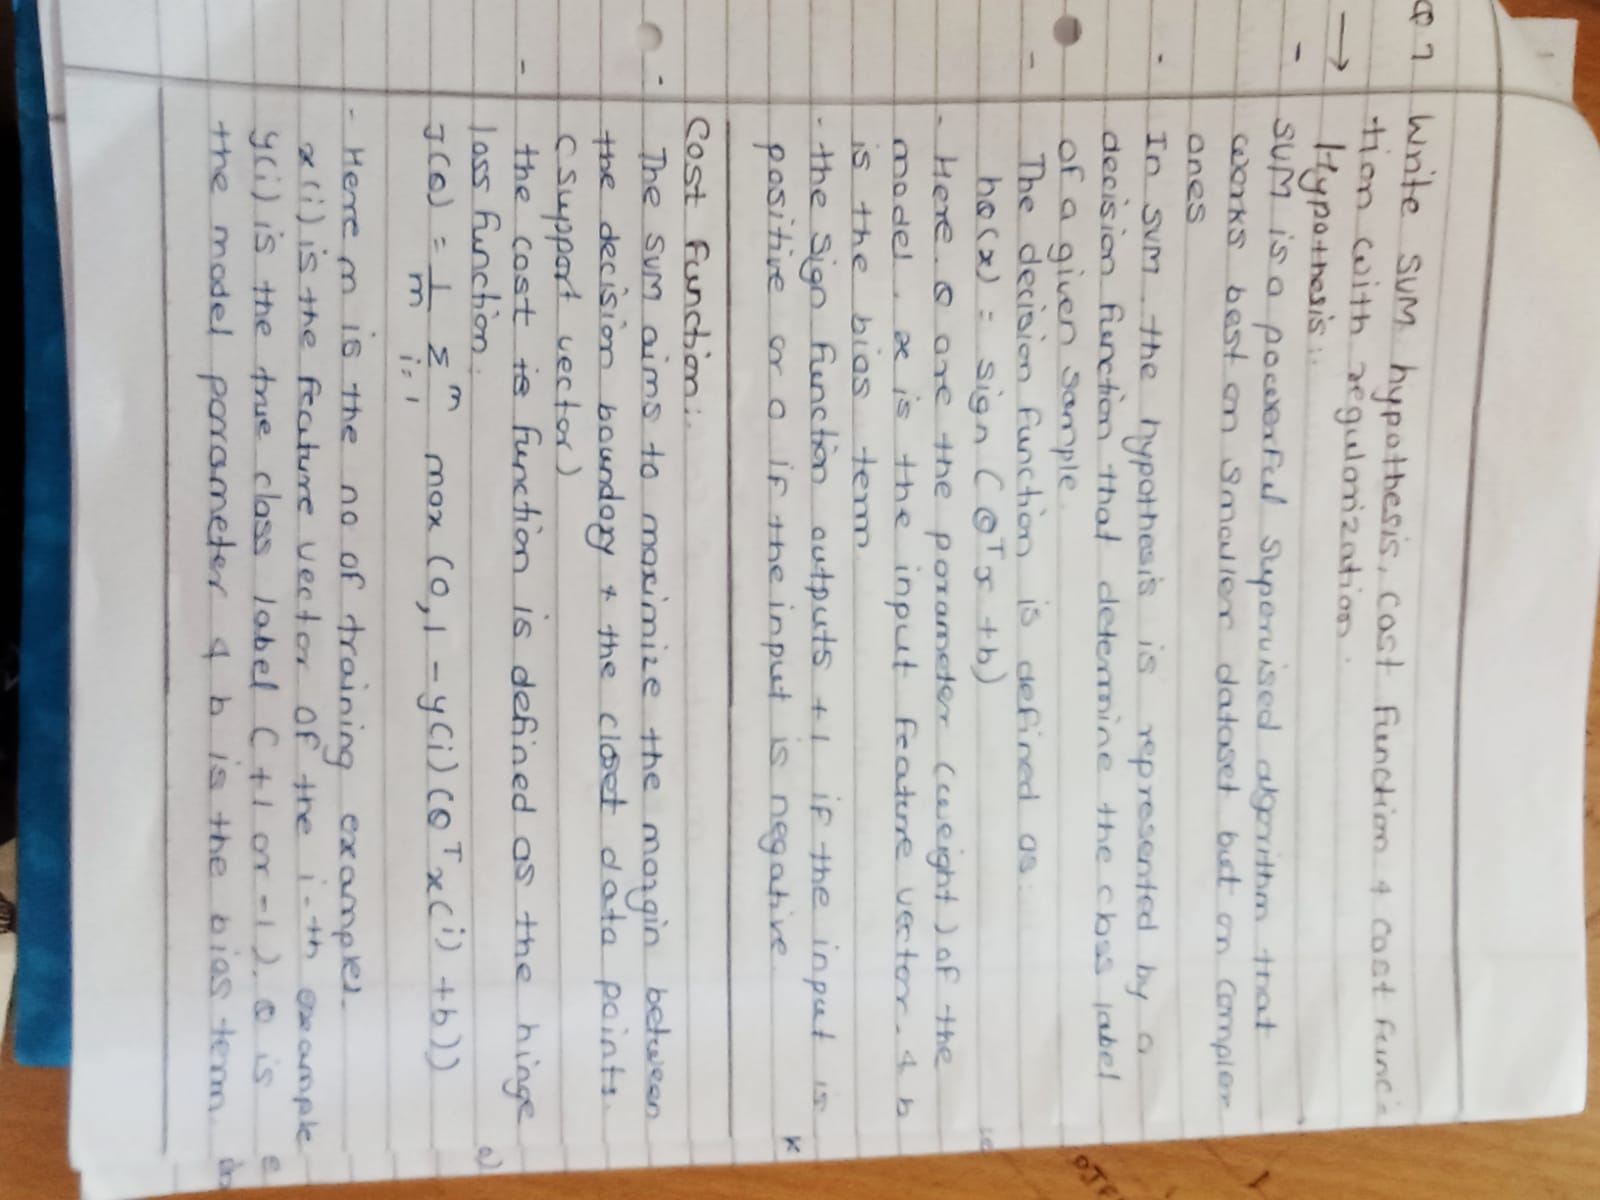 Q 7 Write SVM hypothesis, cost function & cost func-
tion with regularization.
→ Hypothesis:
- SVM is a powerful supervised algorithm that
works best on smaller dataset but on complex
ones
- In SVM. the hypothesis is represented by a
decision function that determine the class label
of a given sample
- The decision function is defined as:
hθ(x) = sign (θᵀx + b)
- Here. θ are the parameter (weight) of the
model. x is the input feature vector. & b
is the bias term
- the sign function outputs +1 if the input is
positive or 0 if the input is negative
Cost function:
- The SVM aims to maximize the margin between
the decision boundary & the closet data points.
(support vector)
- the cost function is defined as the hinge
loss function.
J(θ) = 1/m Σ^m_{i=1} max (0, 1 - y(i) (θᵀx(i) + b))
- Here m is the no of training examples.
x(i) is the feature vector of the i-th example
y(i) is the true class label (+1 or -1). θ is
the model parameter & b is the bias term